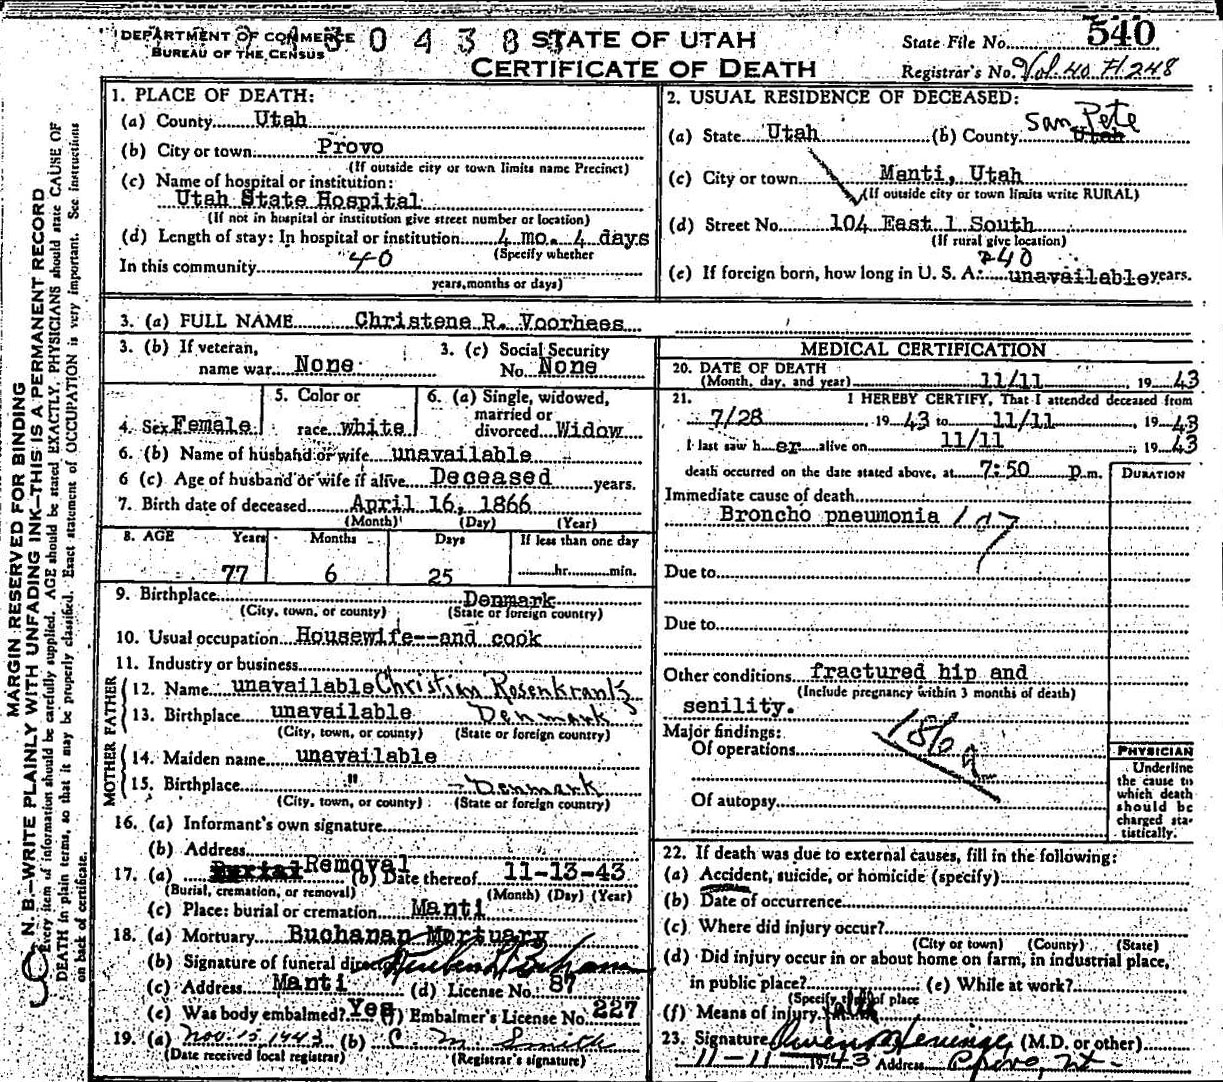 DEPARTMENT OF COMMERCE
BUREAU OF THE CENSUS
STATE OF UTAH
CERTIFICATE OF DEATH
State File No. 540
Registrar's No. Vol 40 H 248
MARGIN RESERVED FOR BINDING
N. B.—WRITE PLAINLY WITH UNFADING INK—THIS IS A PERMANENT RECORD
Every item of information should be carefully supplied. AGE should be stated EXACTLY. PHYSICIANS should state CAUSE OF
DEATH in plain terms, so that it may be properly classified. Exact statement of OCCUPATION is very important. See instructions
on back of certificate.
1. PLACE OF DEATH:
(a) County Utah
(b) City or town Provo
(If outside city or town limits name Precinct)
(c) Name of hospital or institution:
Utah State Hospital
(If not in hospital or institution give street number or location)
(d) Length of stay: In hospital or institution 4 mo. 4 days
(Specify whether
In this community 40
years, months or days)
2. USUAL RESIDENCE OF DECEASED:
(a) State Utah (b) County Utah San Pete
(c) City or town Manti, Utah
(If outside city or town limits write RURAL)
(d) Street No. 104 East 1 South
(If rural give location)
40
(e) If foreign born, how long in U. S. A. unavailable years.
3. (a) FULL NAME Christene R. Voorhees
3. (b) If veteran, name war None
3. (c) Social Security No. None
4. Sex Female
5. Color or race white
6. (a) Single, widowed, married or divorced Widow
6. (b) Name of husband or wife unavailable
6 (c) Age of husband or wife if alive Deceased years.
7. Birth date of deceased April 16, 1866
(Month) (Day) (Year)
8. AGE Years Months Days If less than one day
77 6 25 hr. min.
9. Birthplace Denmark
(City, town, or county) (State or foreign country)
10. Usual occupation Housewife--and cook
11. Industry or business
FATHER
12. Name unavailable Christian Rosenkrantz
13. Birthplace unavailable Denmark
(City, town, or county) (State or foreign country)
MOTHER
14. Maiden name unavailable
15. Birthplace " Denmark
(City, town, or county) (State or foreign country)
16. (a) Informant's own signature
(b) Address
17. (a) Burial Removal (b) Date thereof 11-13-43
(Burial, cremation, or removal) (Month) (Day) (Year)
(c) Place: burial or cremation Manti
18. (a) Mortuary Buchanan Mortuary
(b) Signature of funeral director
(c) Address Manti (d) License No. 87
(e) Was body embalmed? Yes (f) Embalmer's License No. 227
19. (a) Nov. 15, 1943 (b) C. M. Smith
(Date received local registrar) (Registrar's signature)
MEDICAL CERTIFICATION
20. DATE OF DEATH
(Month, day, and year) 11/11 1943
21. I HEREBY CERTIFY, That I attended deceased from
7/28, 1943 to 11/11, 1943
I last saw her alive on 11/11, 1943
death occurred on the date stated above, at 7:50 p.m.
DURATION
Immediate cause of death
Broncho pneumonia 107
Due to
Due to
Other conditions fractured hip and
(Include pregnancy within 3 months of death)
senility.
Major findings:
186a
Of operations
Of autopsy
PHYSICIAN
Underline
the cause to
which death
should be
charged sta-
tistically.
22. If death was due to external causes, fill in the following:
(a) Accident, suicide, or homicide (specify)
(b) Date of occurrence
(c) Where did injury occur?
(City or town) (County) (State)
(d) Did injury occur in or about home on farm, in industrial place,
in public place? (e) While at work?
(Specify type of place
(f) Means of injury fall
23. Signature (M.D. or other)
11-11-1943 Address Provo, Ut.